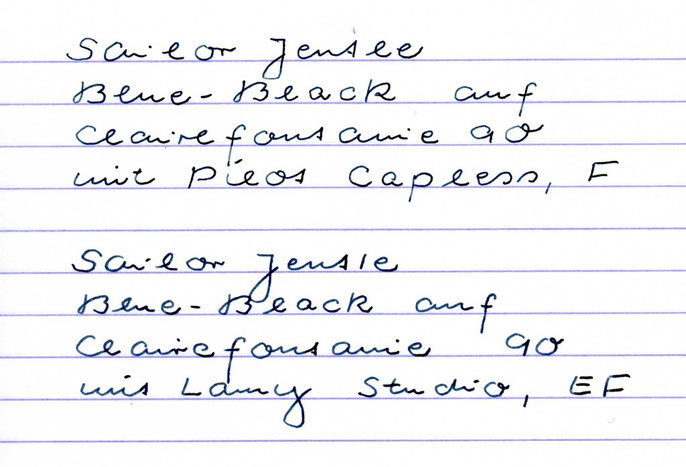 Sailor Jentle
Blue-Black auf
Clairefontaine 90
mit Pilot Capless, F
Sailor Jentle
Blue-Black auf
Clairefontaine 90
mit Lamy Studio, EF